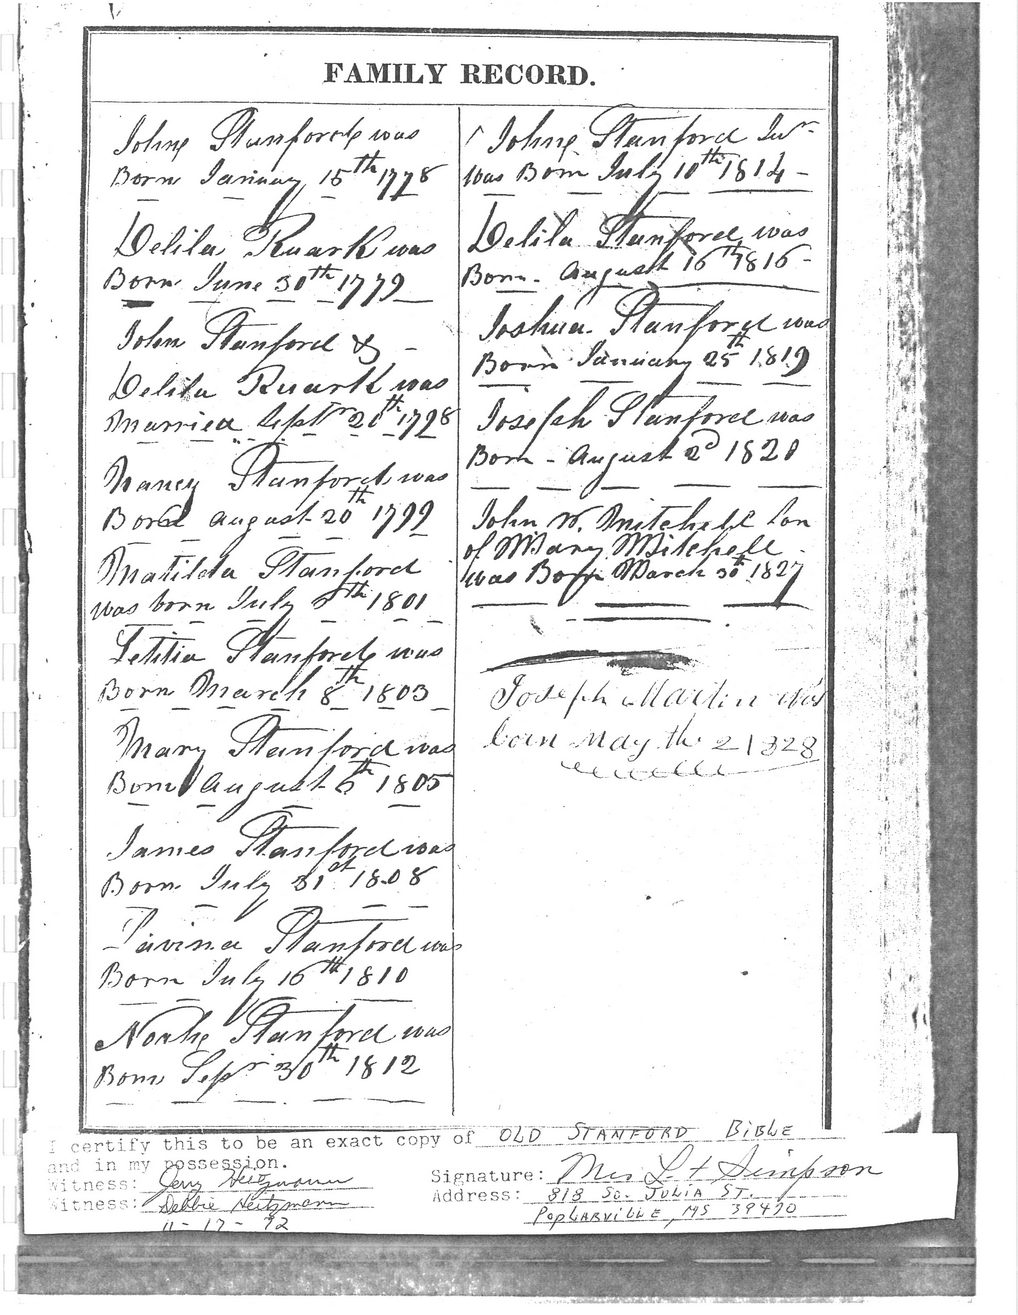 FAMILY RECORD.
John Stanford was
Born January 15th 1778
Delila Ruark was
Born June 30th 1779
John Stanford & -
Delila Ruark was
Married Sept 20th 1798
Nancy Stanford was
Born August 20th 1799
Matilda Stanford
was born July th 1801
Letitia Stanford was
Born March 8th 1803
Mary Stanford was
Born August 6th 1805
James Stanford was
Born July 31st 1808
Lavina Stanford was
Born July 16th 1810
Noah Stanford was
Born Sepr 30th 1812
John Stanford Jur
was Born July 10th 1814 -
Delila Stanford was
Born - August 16th 1816 -
Joshua Stanford was
Born January 25th 1819
Joseph Stanford was
Born - August 2d 1820
John W. Mitchell Son
of Mary Mitchell
was Born March 30th 1827
Joseph Martin was
born May th 2 1828
I certify this to be an exact copy of OLD STANFORD BIBLE
and in my possession.
Witness: Jerry Heitzmann
Witness: Debbie Heitzmann
11-17-92
Signature: Mrs L. F Simpson
Address: 818 So. JULIA ST.
POPLARVILLE, MS 39470